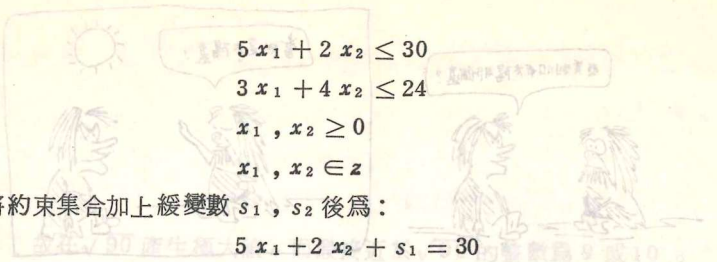 5 x₁ + 2 x₂ ≤ 30
3 x₁ + 4 x₂ ≤ 24
x₁ , x₂ ≥ 0
x₁ , x₂ ∈ z
將約束集合加上緩變數 s₁ , s₂ 後爲：
5 x₁ + 2 x₂ + s₁ = 30